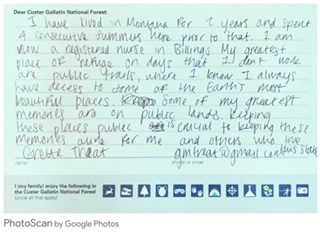 Dear Custer Gallatin National Forest
I have lived in Montana for 2 years and spent
4 consecutive summers here prior to that. I am
now a registered nurse in Billings. My greatest
place of refuge on days that I don't work
are public trails, where I know I always
have access to some of the Earth's most
beautiful places. Some of my greatest
memories are on public lands. Keeping
these places public is crucial to keeping these
memories alive for me and others who love
this state
name
phone or email
I (my family) enjoy the following in
the Custer Gallatin National Forest
(circle all that apply)
PhotoScan by Google Photos